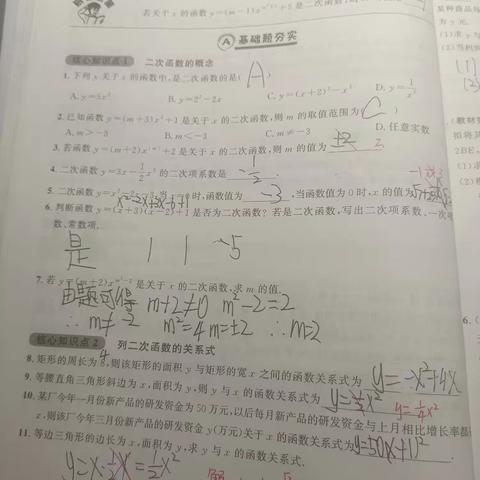 若关于 x 的函数 y=(m-1)x
+5 是二次函数,
某种商品每
为 y 元.
(1)求 y 与
(2)当利润
A 基础题夯实
核心知识点1 二次函数的概念
1. 下列 y 关于 x 的函数中,是二次函数的是( A )
A. y=5x² B. y=2²-2x C. y=(x+2)²-x² D. y=1/x²
2. 已知函数 y=(m+3)x²+1 是关于 x 的二次函数,则 m 的取值范围为( C )
A. m>-3 B. m<-3 C. m≠-3 D. 任意实数
3. 若函数 y=(m+2)x +2 是关于 x 的二次函数,则 m 的值为 ±2 2
4. 二次函数 y=3x-1/2x² 的二次项系数是 -1/2 .
5. 二次函数 时,函数值为 -3 ,当函数值为 0 时,x 的值为
6. 判断函数 y=(x+3)(x-2)+1 是否为二次函数?若是二次函数,写出二次项系数、一次项
数、常数项.
是 1 1 -5
7. 若 y=(m+2)x 是关于 x 的二次函数,求 m 的值.
由题可得 m+2≠0 m²-2=2
∴m≠-2 m²=4 m=±2 ∴m=2
核心知识点2 列二次函数的关系式
8. 矩形的周长为 8,则该矩形的面积 y 与矩形的宽 x 之间的函数关系式为 y=-x²+4x
9. 等腰直角三角形斜边为 x,面积为 y,则 y 与 x 的函数关系式为 y=½x² y=¼x²
10. 某厂今年一月份新产品的研发资金为 50 万元,以后每月新产品的研发资金与上月相比增长率都
x,则该厂今年三月份新产品的研发资金 y(万元)关于 x 的函数关系式为 y=50(x+1)²
11. 等边三角形的边长为 x,面积为 y,求 y 与 x 的函数关系式.
y=x·½x=½x²